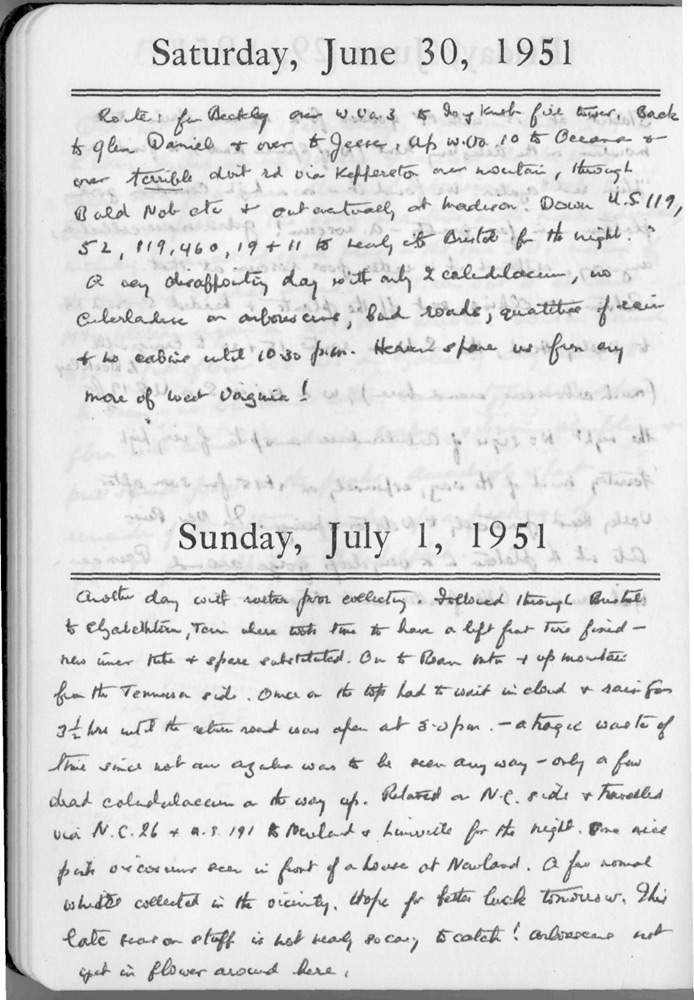 Saturday, June 30, 1951
Route: fm Beckley over W.Va 3 to fire tower. Back
to Glen Daniel & over to Jesse, up W.Va. 10 to Oceana &
over terrible dirt rd via Kopperston over mountain, through
Bald Nob etc & out eventually at Madison. Down U.S 119,
52, 119, 460, 19 + 11 to Bristol for the night.
A very disappointing day with only 2 calendulaceum, no
or arborescens, bad roads, quantities of rain
& no cabins until 10.30 p.m. Heaven spare us from any
more of West Virginia!
Sunday, July 1, 1951
Another day with rather poor collecting. Followed through Bristol
to Elizabethton, Tenn where took time to have a left front tire fixed –
new inner tube & spare substituted. On to Roan Mtn & up mountain
from the Tennessee side. Once on the top had to wait in cloud & rain for
3½ hrs until the return road was open at p.m. – a tragic waste of
time since not an azalea was to be seen any way – only a few
dead calendulaceum on the way up. on N.C. side & travelled
via N.C. 26 & U.S. 191 to Newland & Linville for the night. One nice
seen in front of a house at Newland. A few normal
collected in the vicinity. Hope for better luck tomorrow. This
late season stuff is not really so easy to catch! arborescens not
yet in flower around here.